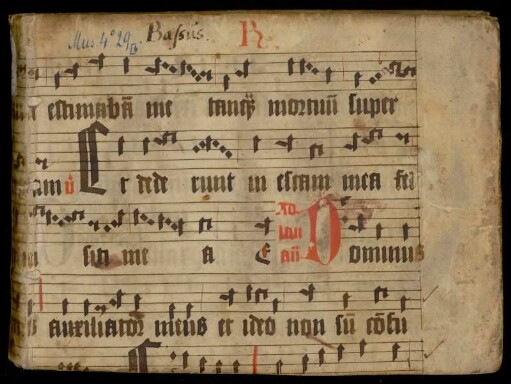 Mus. 4° 29 Bassus. R
estimabā me tanq̄ mortuū super
am v̓ Et dede runt in escam mea fel
si ti me a E Ad lau aū Dominus
auxiliator meus et ideo non sū cōfu